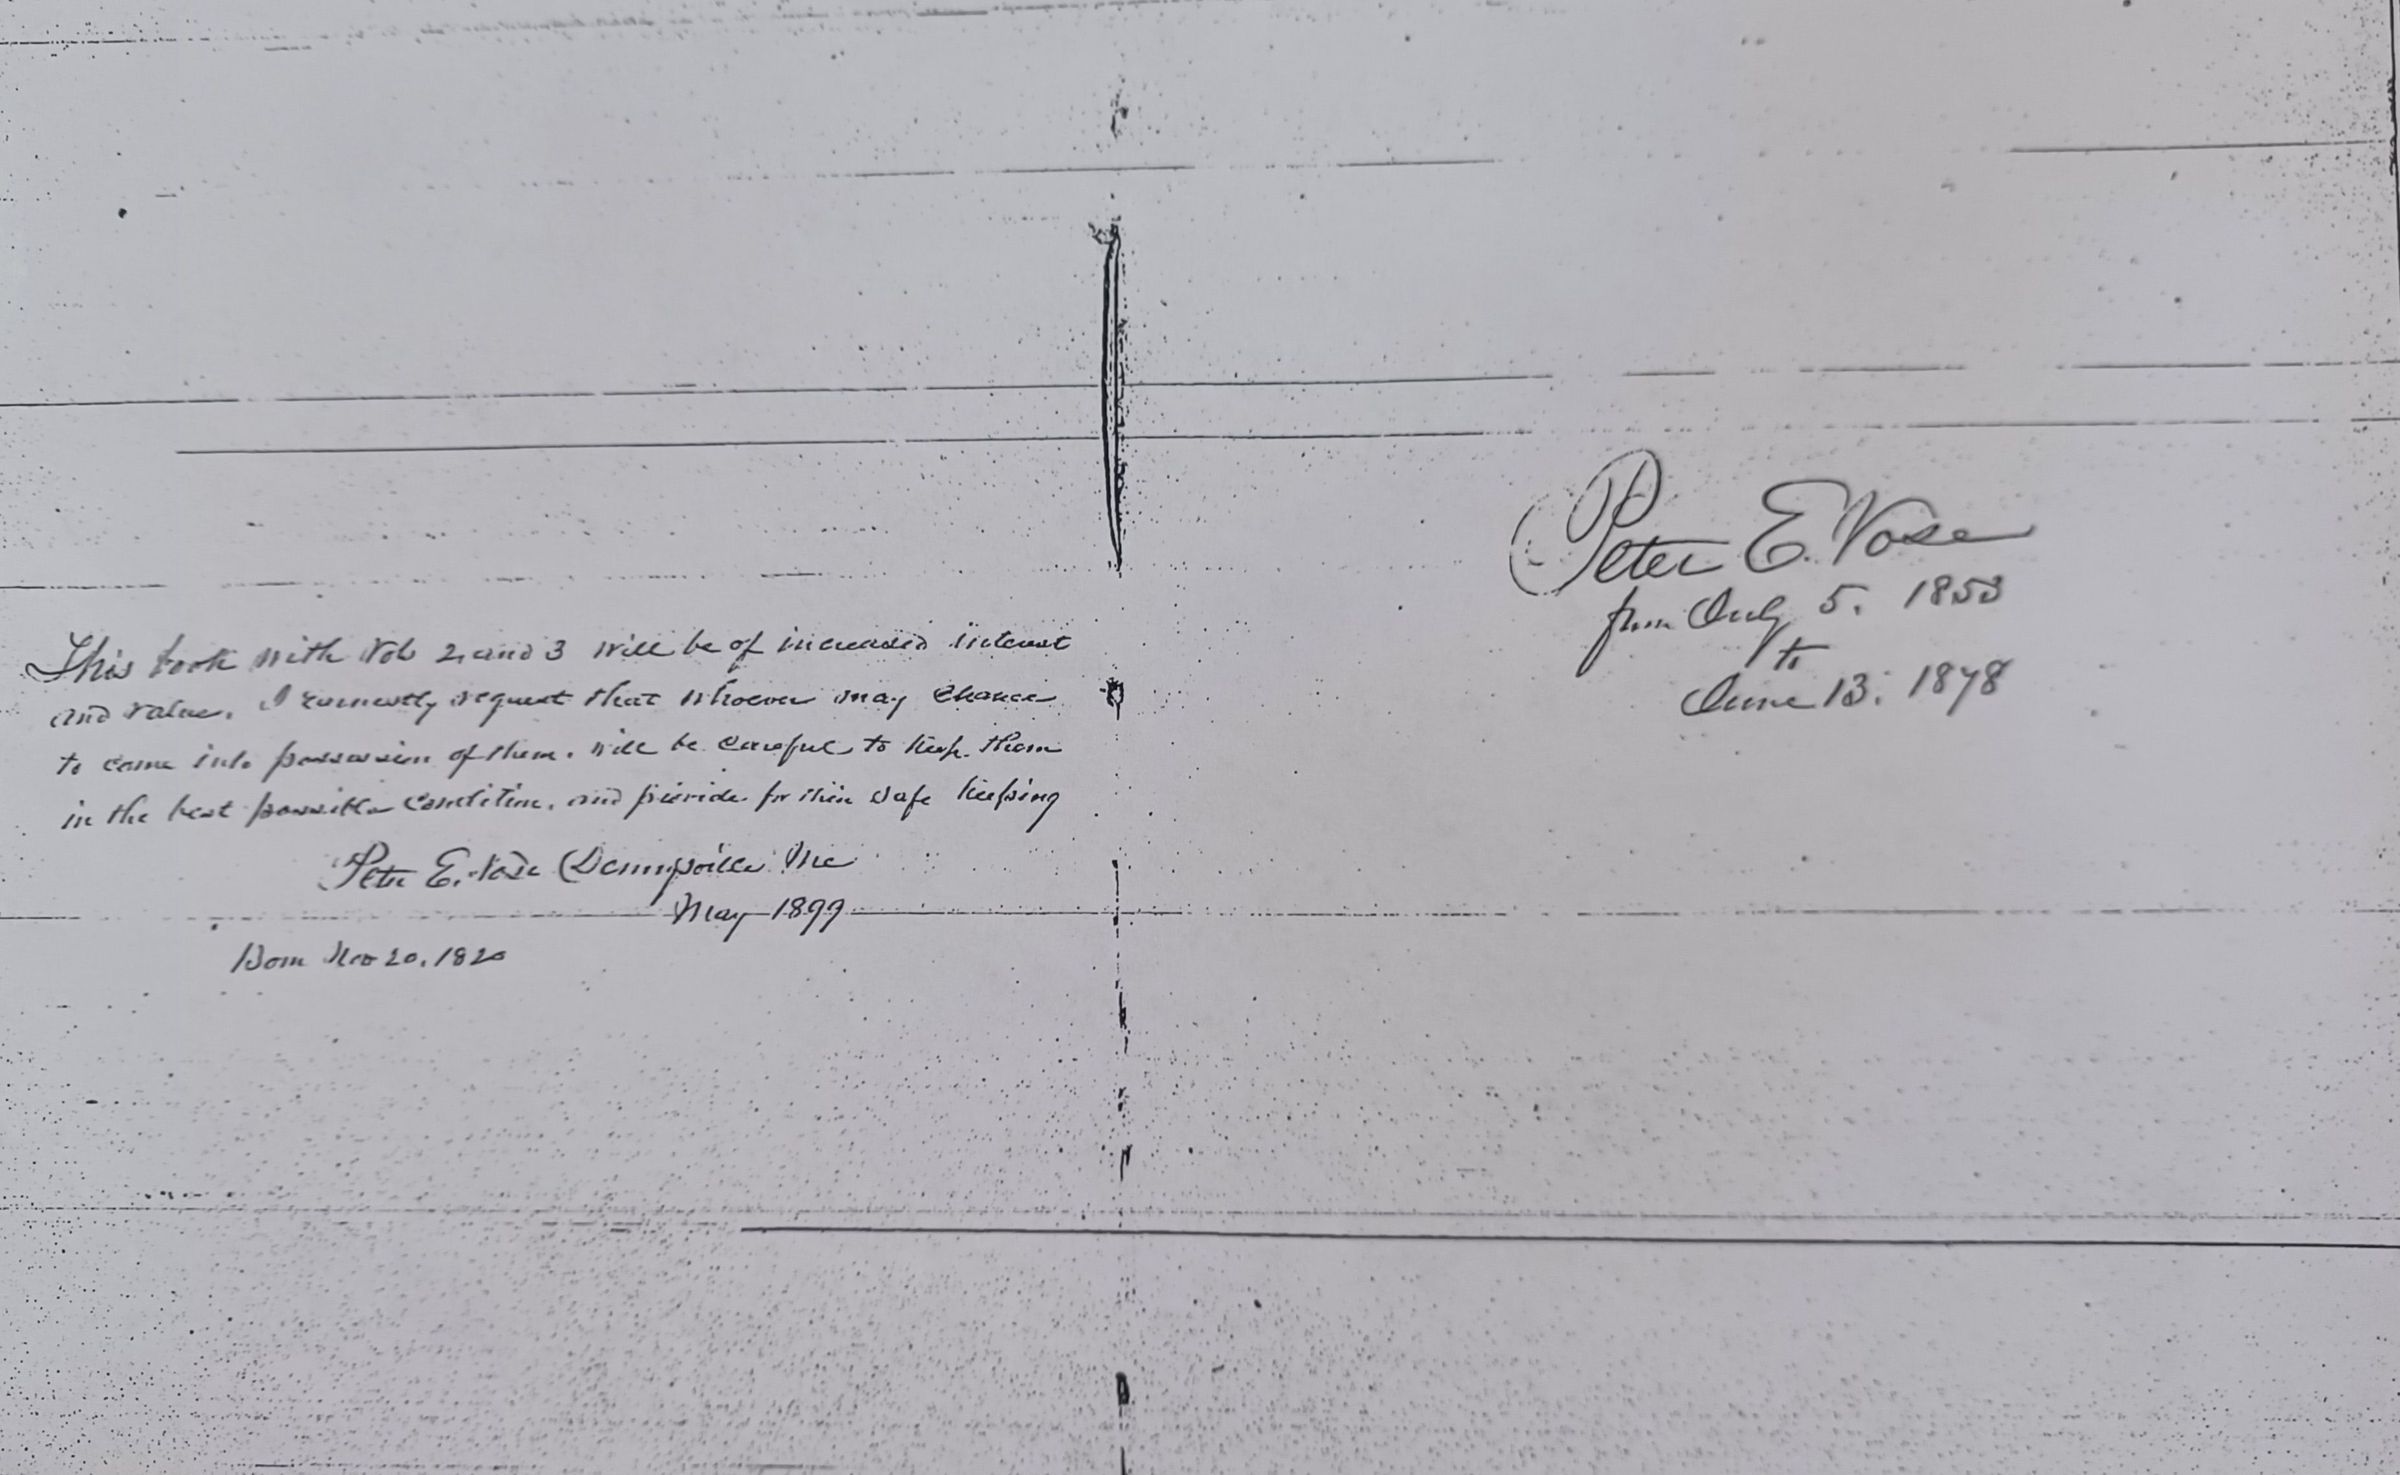 This book with Vols 2, and 3 will be of increased interest
and value. I earnestly request that whoever may chance
to come into possession of them. will be careful to keep them
in the best possible condition. and provide for their safe keeping
Peter E. Vose Dennysville Me
May 1899
Born Nov 20, 1820
Peter E. Vose
from July 5. 1853
to
June 13. 1878